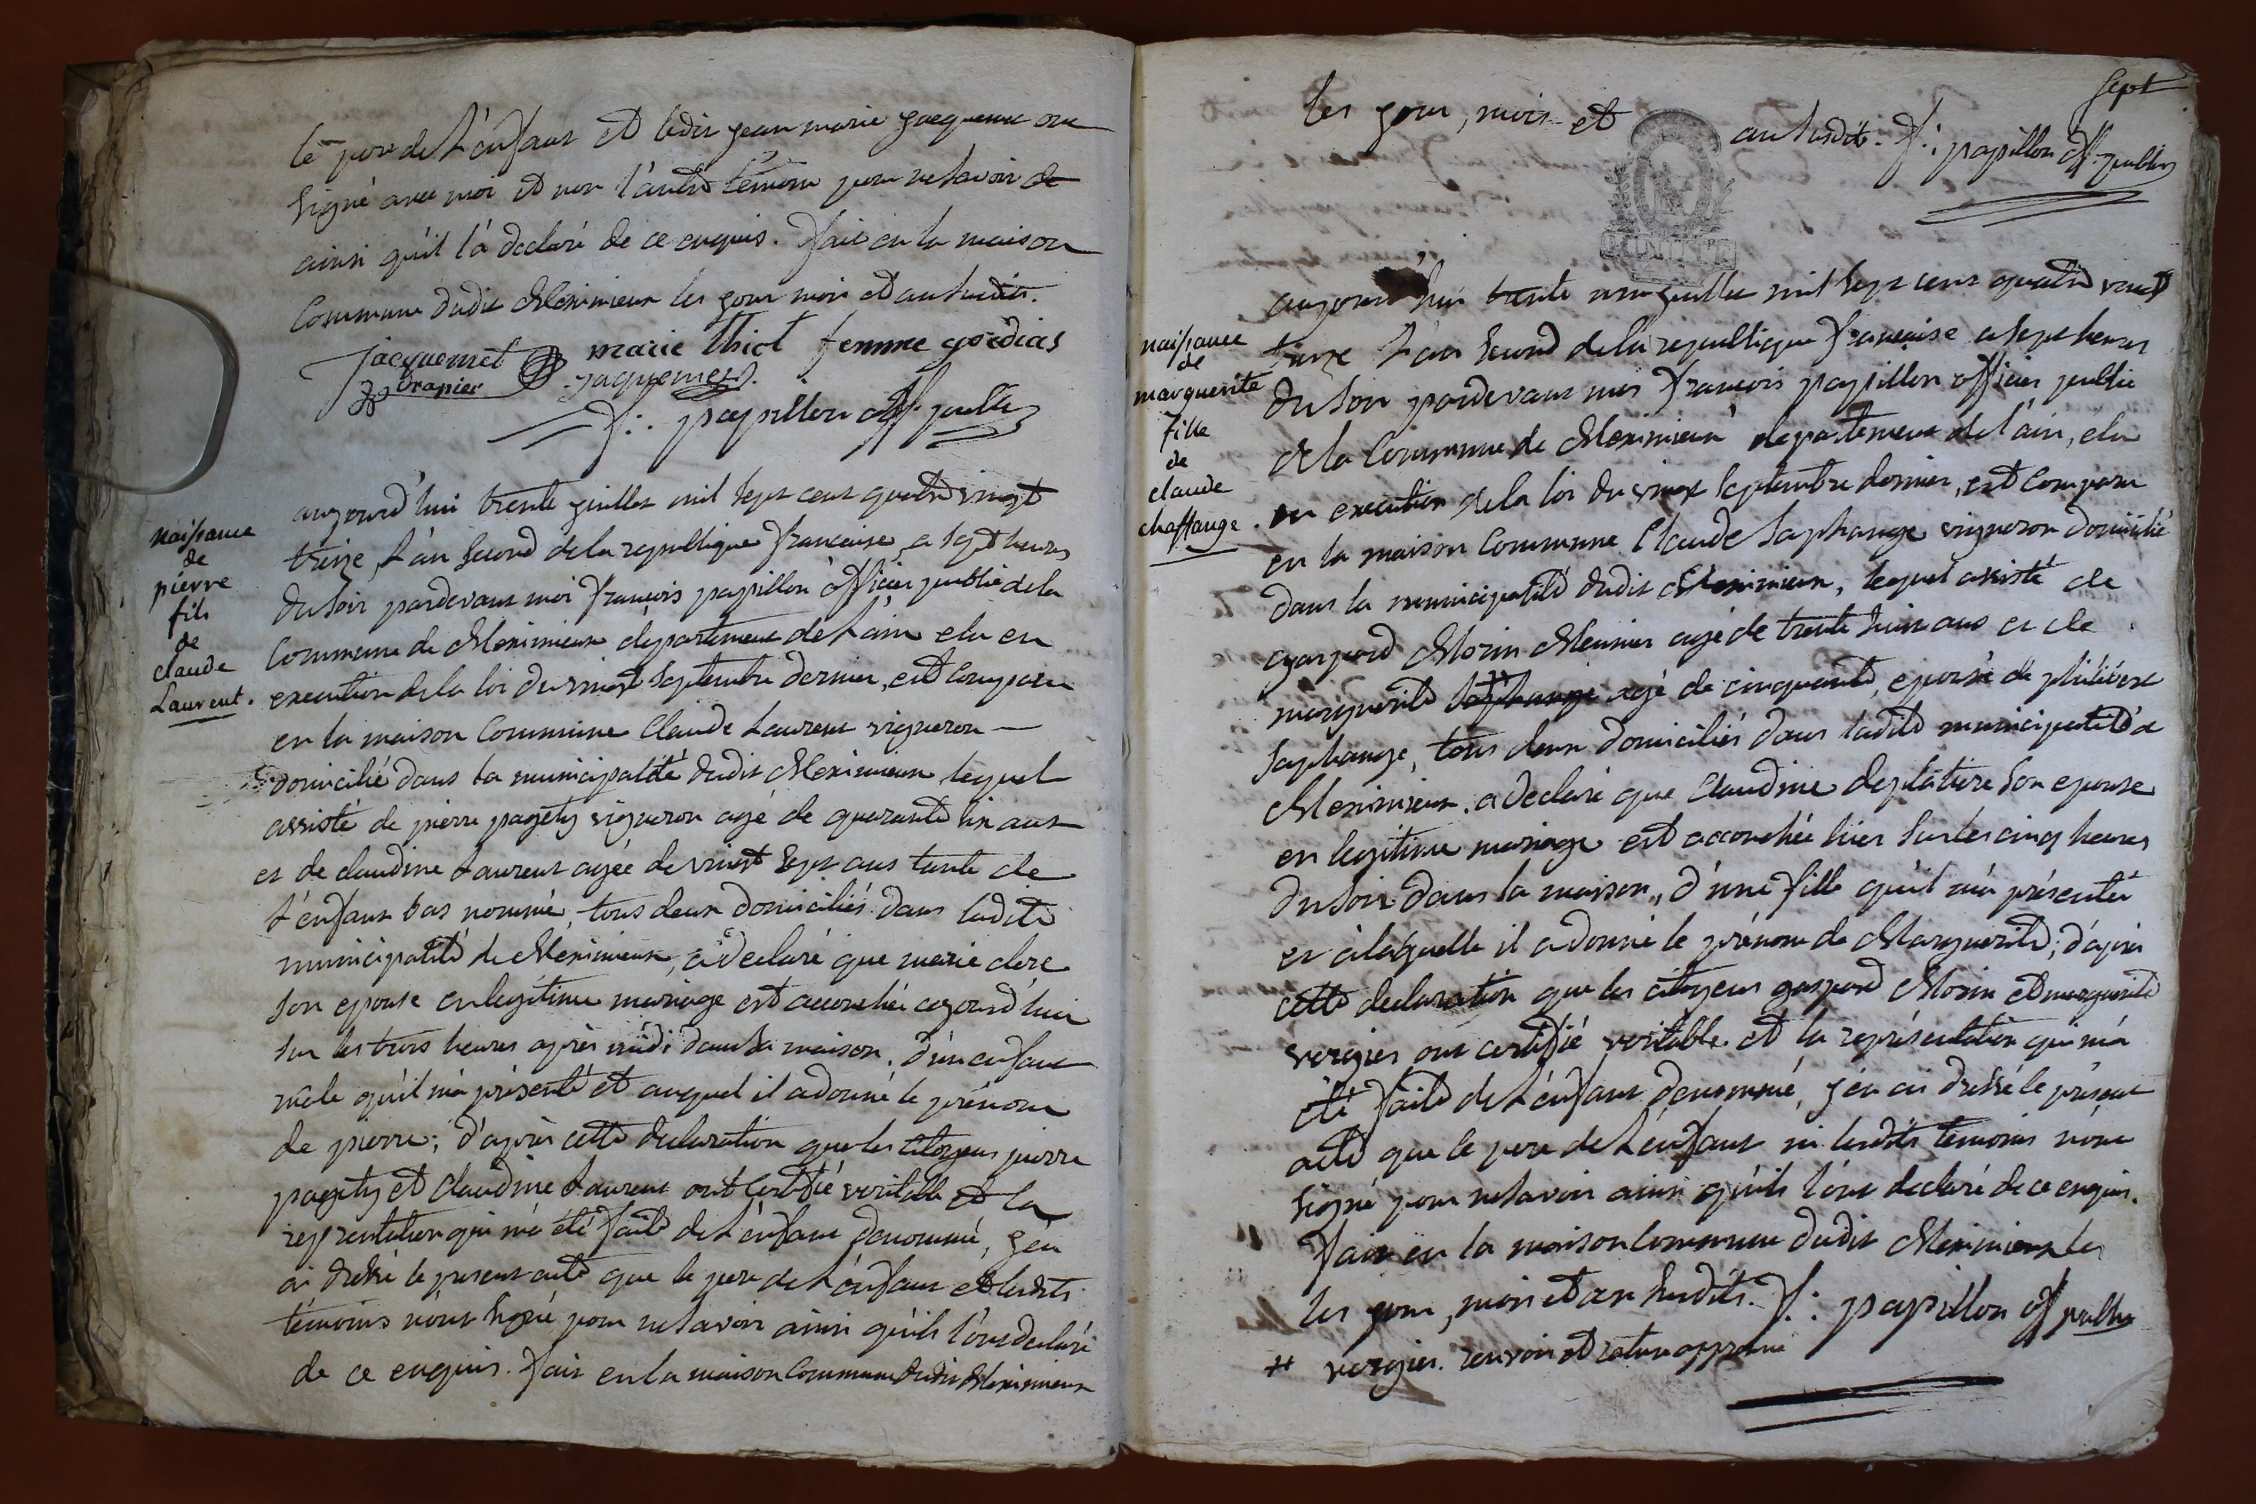 le pere de l'enfant et ledit jean marie jacquemet ont
signé avec moi et non l'autre témoin pour ne savoir de
ainsi qu'il l'a declaré de ce enquis. fait en la maison
Commune dudit Meximieux les jour mois et an susdits.
jacquemet marie thiot femme
Drapier jaquemet
f: papillon off. public
naissance
de
pierre
fils
de
claude
Laurent.
aujourd'hui trente juillet mil sept cent quatre vingt
treize, l'an second de la republique francaise a sept heures
du soir pardevant moi françois papillon officier public de la
Commune de Meximieux département de L'ain elu en
execution de la loi du vingt septembre dernier, est comparu
en la maison Commune Claude Laurent vigneron
domicilié dans la municipalité dudit Meximieux lequel
assisté de pierre pagety vigneron agé de quarante six ans
et de claudine Laurent agée de vingt sept ans tante de
L'enfant bas nommé, tous deux domiciliés dans ladite
municipalité de Meximieux, a declaré que marie clere
son epouse en legitime mariage est accouchée aujourd'hui
sur les trois heures après midi dans sa maison, d'un enfant
male qu'il m'a présenté et auquel il a donné le prénom
de pierre; d'après cette declaration que les citoyens pierre
pagety et claudine Laurent ont certifié veritable et la
representation qui m'a été faite de L'enfant denommé, j'en
ai dressé le present acte que le pere de L'enfant et lesdits
témoins n'ont signé pour ne savoir ainsi qu'ils l'ont declaré
de ce enquis. fait en la maison Commune dudit Meximieux
sept
les jour, mois et an susdits. f: papillon off. public
naissance
de
marguerite
fille
de
claude
chaffange.
aujourd'hui trente un juillet mil sept cent quatre vingt
treize l'an second de la republique francaise a sept heures
du soir pardevant moi françois papillon officier public
de la Commune de Meximieux departement de l'ain, elu
en execution de la loi du vingt septembre dernier, est comparu
en la maison Commune Claude Saphange vigneron domicilié
dans la municipalité dudit Meximieux, lequel assisté de
gaspard Morin Meunier agé de trente huit ans et de
marguerite Saphange agé de cinquante, epouse de philibert
Saphange, tous deux domiciliés dans ladite municipalité de
Meximieux, a declaré que Claudine deplatiere son epouse
en legitime mariage est accouchée hier sur les cinq heures
du soir dans sa maison, d'une fille qu'il m'a présenté
et à laquelle il a donné le prénom de Marguerite; d'après
cette declaration que les citoyens gaspard Morin et marguerite
vergier ont certifié veritable et la représentation qui m'a
été faite de L'enfant denommé, j'en ai dressé le présent
acte que le pere de L'enfant ni lesdits temoins n'ont
signé pour ne savoir ainsi qu'ils l'ont declaré de ce enquis.
fait en la maison Commune dudit Meximieux les
les jour, mois et an susdits. f: papillon off public
# vergier. renvoi et rature approuvé